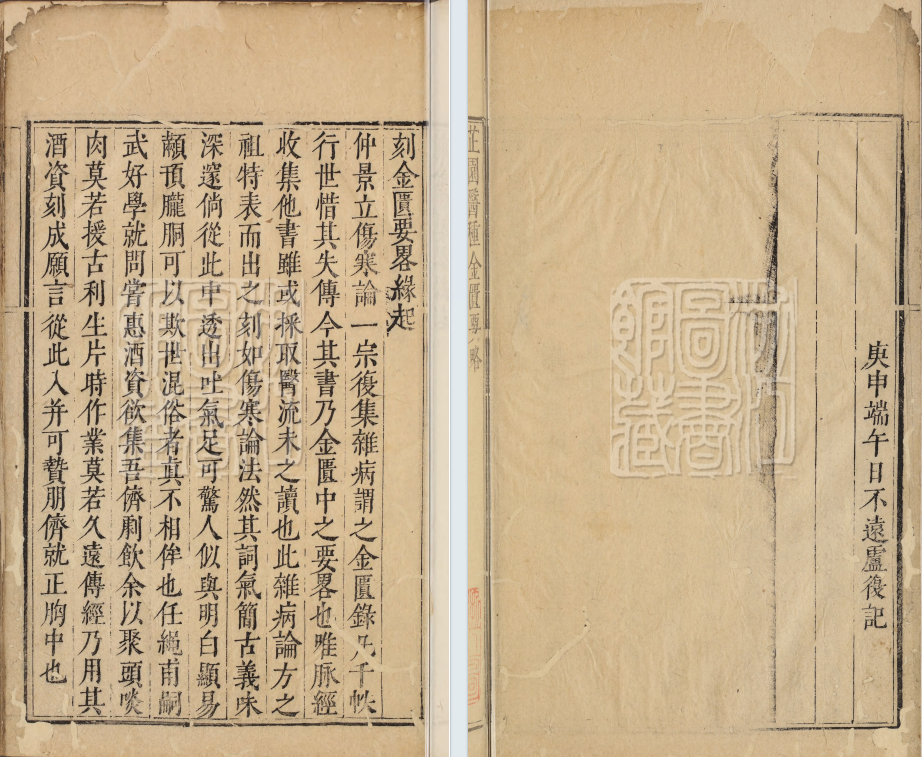 庚申端午日不遠廬復記
刻金匱要畧緣起
仲景立傷寒論一宗復集雜病謂之金匱錄乃千帙
行世惜其失傳今其書乃金匱中之要畧也唯脉經
收集他書雖或採取醫流未之讀也此雜病論方之
祖特表而出之刻如傷寒論法然其詞氣簡古義味
深邃倘從此中透出吐氣足可驚人似與明白顯易
顢頇朧胴可以欺世混俗者真不相侔也任繩甫嗣
武好學就問嘗惠酒資欲集吾儕劇飲余以聚頭啖
肉莫若援古利生片時作業莫若久遠傳經乃用其
酒資刻成願言從此入并可贊朋儕就正胸中也